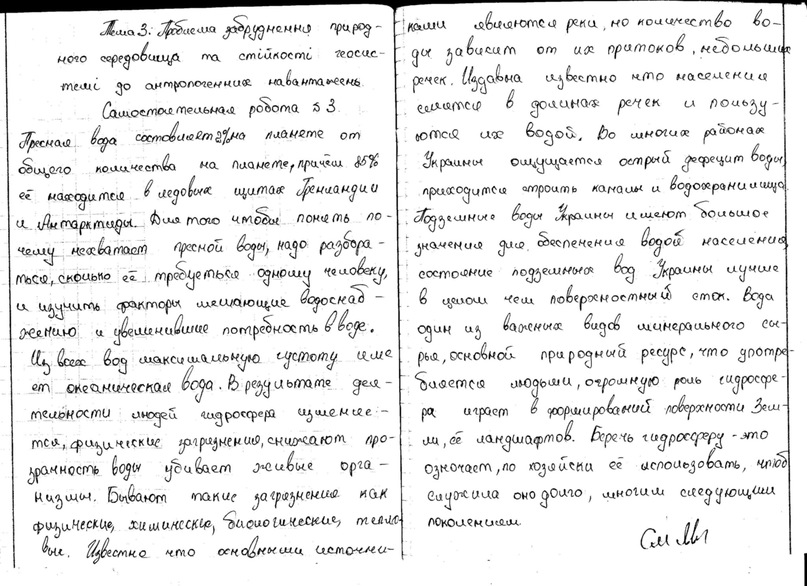 Тема 3: Проблема забруднення природ-
ного середовища та стійкості геосис-
темі до антропогенних навантажень
Самостоятельная робота № 3.
Пресная вода составляет 2% на планете от
общего количества на планете, причём 85%
её находится в ледовых щитах Гренландии
и Антарктиды. Для того чтобы понять по-
чему нехватает пресной воды, надо разбора-
ться, сколько её требуеться одному человеку,
и изучить факторы мешающие водоснаб-
жению и увеличившие потребность в воде.
Из всех вод максимальную густоту име
ет океаническая вода. В результате дея-
тельности людей гидросфера изменяе-
тся, физические загрязнения, снижают про-
зрачность воды убивает живые орга-
низмы. Бывают такие загрязнения как
физические, химические, биологические, тепло
вые. Известно что основными источни-
ками являются реки, но количество во-
ды зависит от их притоков, небольших
речек. Издавна известно что население
селится в долинах речек и пользу-
ются их водой. Во многих районах
Украины ощущается острый дефецит воды,
приходится строить каналы и водохранилища
Подземные воды Украины имеют большое
значения для обеспечения водой населения,
состояние подземных вод Украины лучше
в целом чем поверхностный сток. Вода
один из важных видов минерального сы-
рья, основной природный ресурс, что употре-
бляется людьми, огромную роль гидросфе-
ра играет в формировании поверхности Зем-
ли, её ландшафтов. Беречь гидросферу - это
означает, по хозяйски её использовать, чтоб
служила оно долго, многим следующим
поколениям.